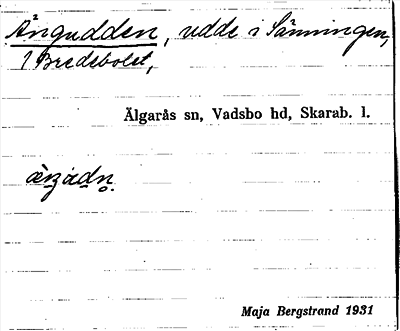 Ängudden, udde i Sänningen,
1 Bredebolet,
Älgarås sn, Vadsbo hd, Skarab. l.
Maja Bergstrand 1931